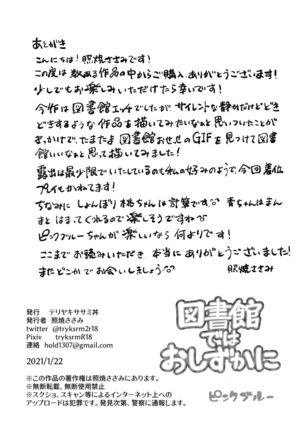 あとがき
こんにちは！照焼ささみです！
この度は数ある作品の中からご購入、ありがとうございます！
少しでもお楽しみいただけたら幸いです！
今作は図書館エッチでしたが、サイレントな静かだけどどき
どきするような作品を描いてみたいなぁと思っていたことが
きっかけで、たまたま図書館おせっせのGIFを見つけて図書
館いいなぁと思って描いてみました！
露出は最少限でいたしているのも私が好みのようで、今回着位
プレイもかねてます！
ちなみにしょんぼり桃ちゃんは計算です 青ちゃんはまん
まとはまってくれるので楽しそうですね
ピンクブルーちゃんが楽しいなら何よりです！
ここまでお読みいただき本当にありがとうございました！
またどこかでお会いしましょう
照焼ささみ
発行　テリヤキササミ丼
発行者　照焼ささみ
twitter　@tryksrm2r18
Pixiv　tryksrmR18
連絡　hold1307@gmail.com
2021/1/22
※この作品の著作権は照焼ささみにあります。
※無断転載、無断使用禁止
※スクショ、スキャン等によるインターネット上への
アップロードは犯罪です。発見次第、警察に通報します。
図書館
では
おしずかに
ピンクブルー